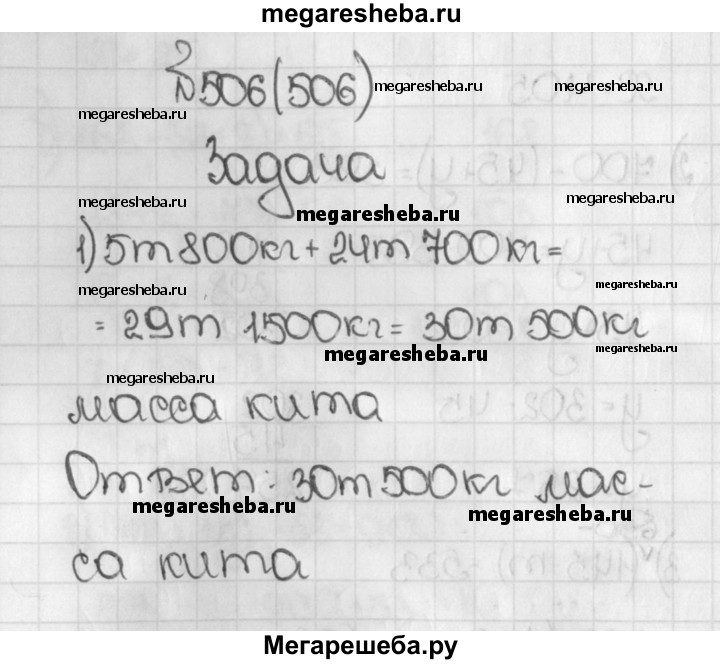 megaresheba.ru
№506(506) megaresheba.ru
megaresheba.ru
Задача
megaresheba.ru megaresheba.ru
megaresheba.ru
1) 5т 800кг + 24т 700кг =
megaresheba.ru megaresheba.ru
= 29т 1500кг = 30т 500кг
megaresheba.ru megaresheba.ru
megaresheba.ru
масса кита
Ответ: 30т 500кг мас-
megaresheba.ru megaresheba.ru
са кита
Мегарешеба.ру